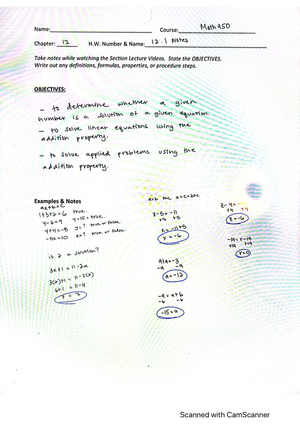 Name: Course: Math 950
Chapter: 12 H.W. Number & Name: 12.1 Notes
Take notes while watching the Section Lecture Videos. State the OBJECTIVES.
Write out any definitions, formulas, properties, or procedure steps.
OBJECTIVES:
- to determine whether a given
number is a solution of a given equation
- to solve linear equations using the
addition property.
- to solve applied problems using the
addition property.
Examples & Notes
1+3+2=6 true
y-6=9 y=15 = true.
y+11=-8 y=? true or false
-5x=10 x=? true or false.
is 2 a solution?
3x+1 = 11-2x
3(2)+1 = 11-2(2)
6+1 = 11-4
7 = 7
a=b the a+c=b+c
x-5=-11
+5 +5
x=-11+5
x=-6
9+a=-3
-9 -9
a=-12
-9=a+6
-6 -6
-15=a
z-4=
+4 +4
z=-6
-19=r-19
+19 +19
r=0
Scanned with CamScanner